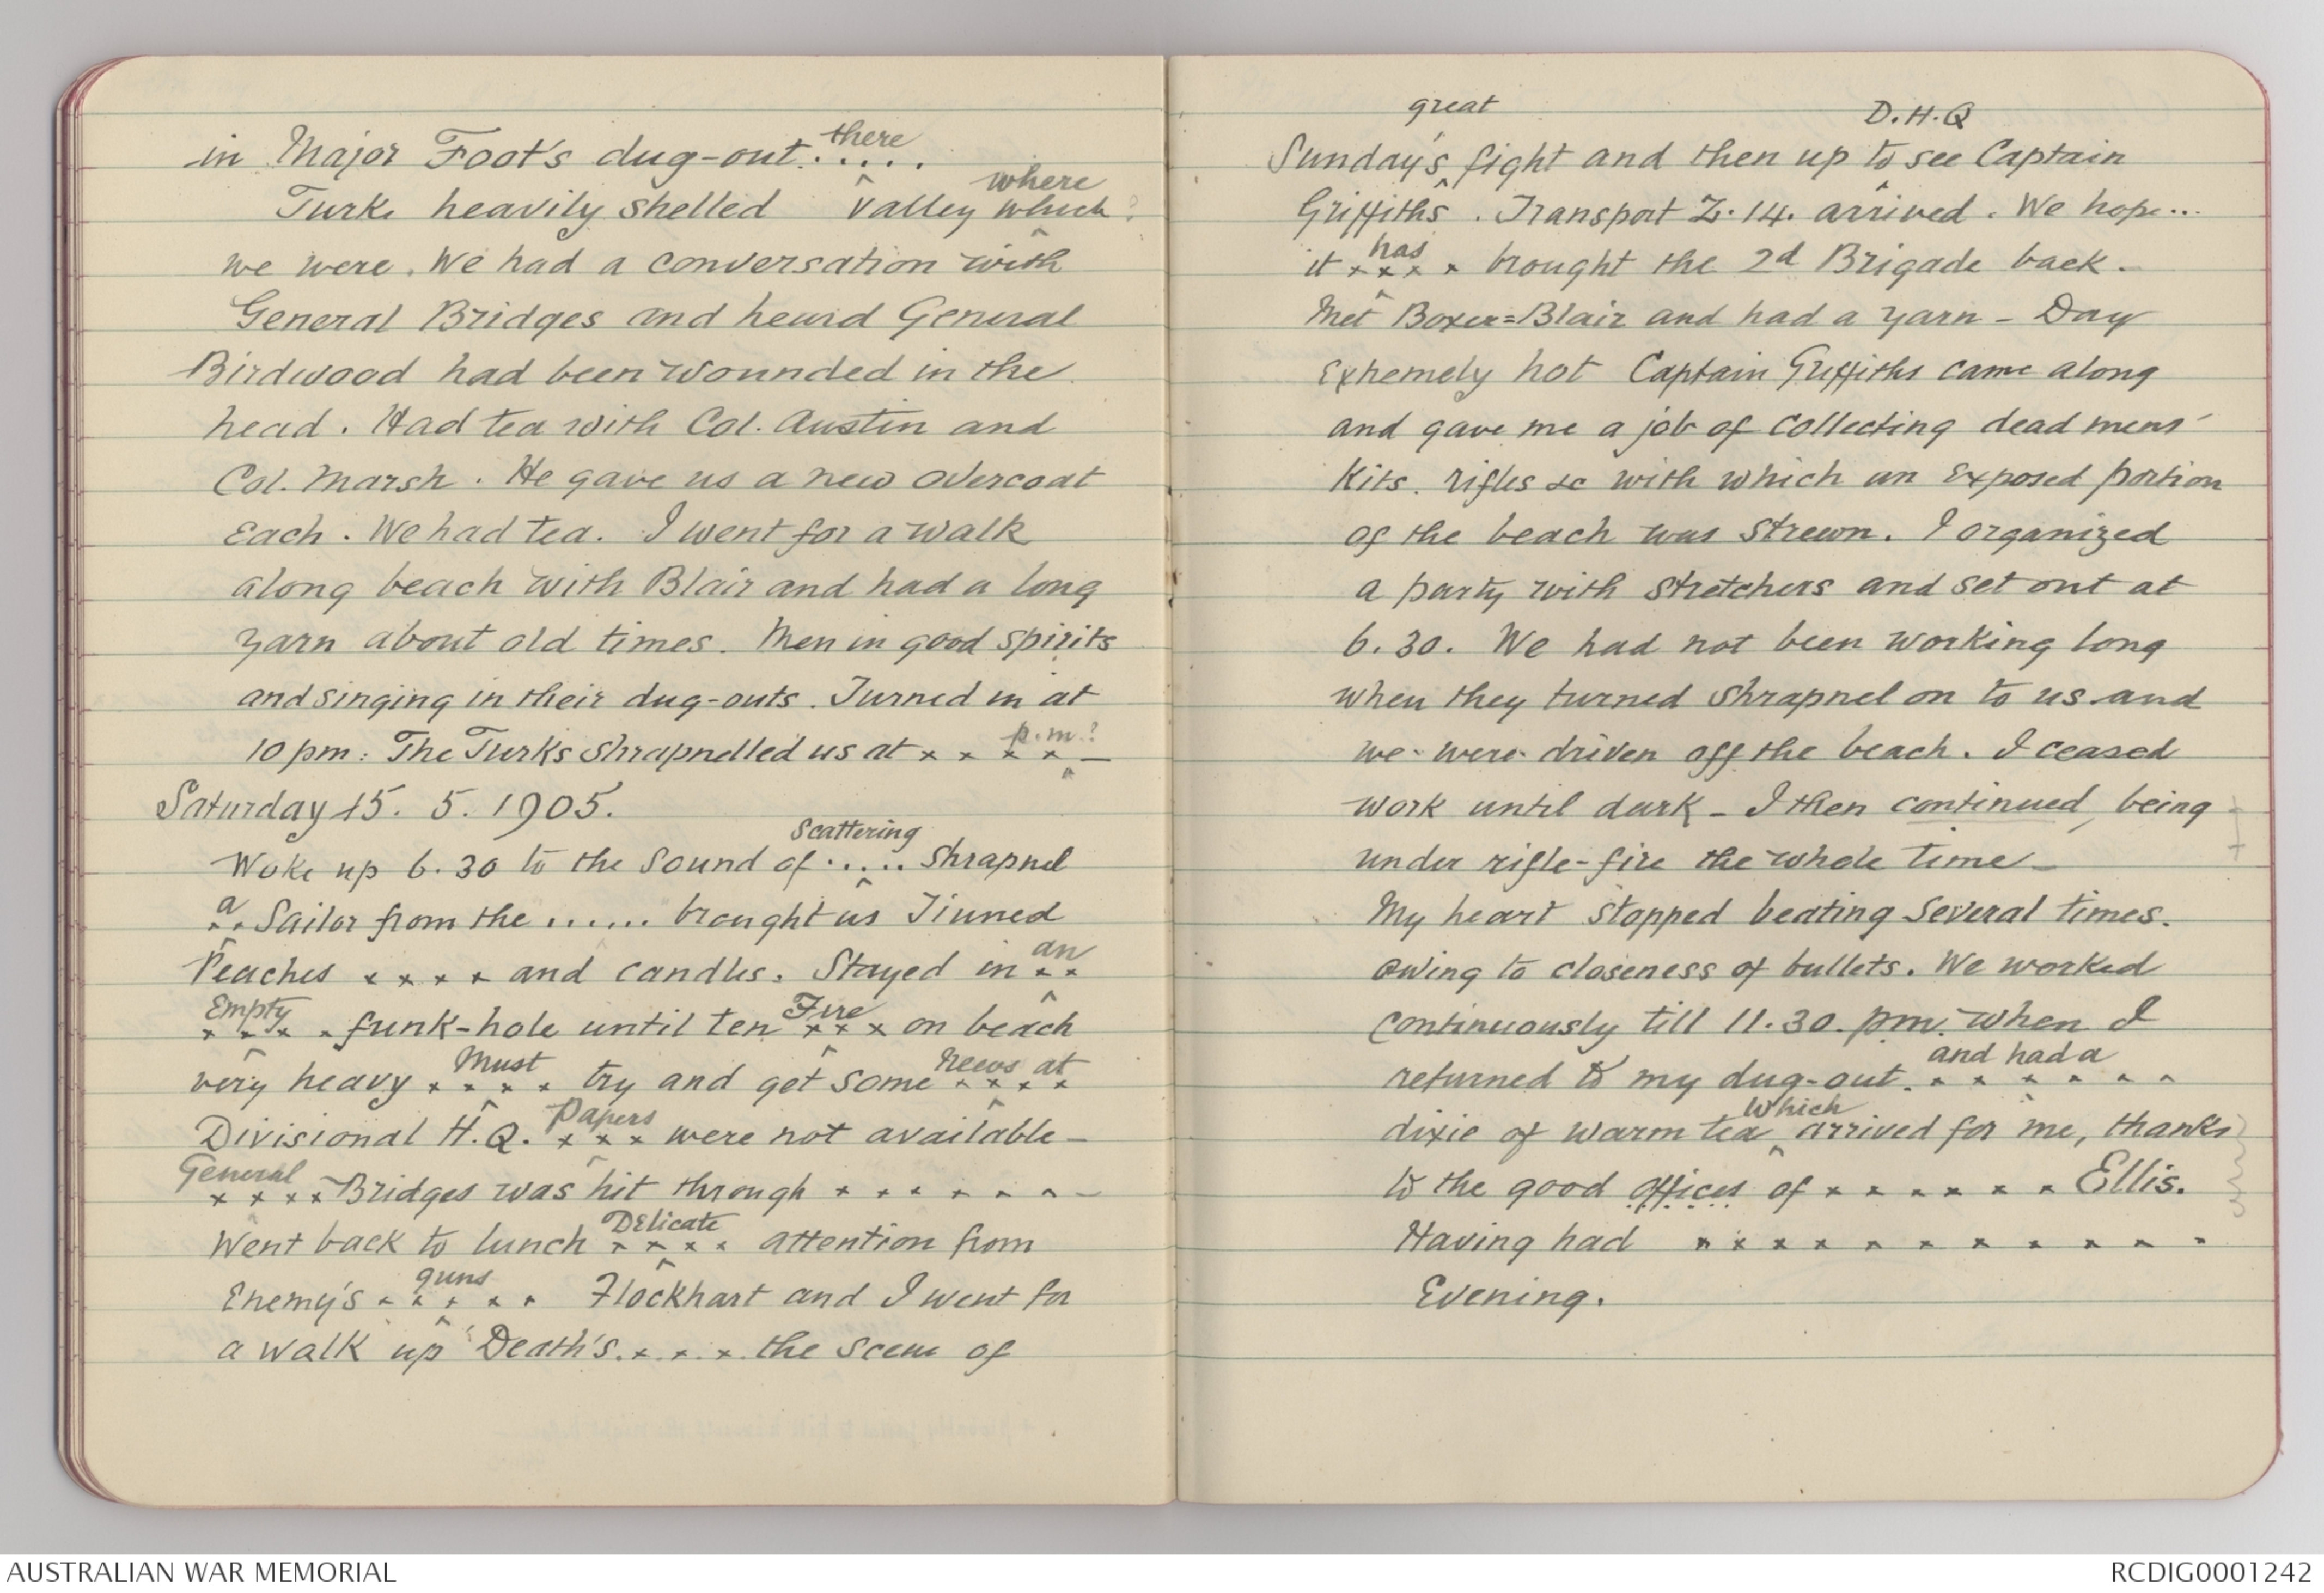 there
in Major Foot's dug-out. . . . .
where
Turks heavily shelled ^ valley which?
we were. We had a conversation with
General Bridges and heard General
Birdwood had been wounded in the
head. Had tea with Col. Austin and
Col. Marsh. He gave us a new overcoat
each. We had tea. I went for a walk
along beach with Blair and had a long
yarn about old times. Men in good spirits
and singing in their dug-outs. Turned in at
p.m.?
10 pm: The Turks shrapnelled us at x x x x –
Saturday 15. 5. 1905.
Scattering
Woke up 6.30 to the sound of . . . . . shrapnel
a
. . Sailor from the ...... brought us Tinned
an
Peaches x x x x and candles. Stayed in x x
Empty Fire
x x x x funk-hole until ten x x x on beach
Must News at
very heavy x x x x try and get some x x x x
Papers
Divisional H.Q. x x x were not available –
General
x x x x Bridges was hit through x x x x x x x –
Delicate
Went back to lunch x x x x attention from
guns
Enemy's x x x x x Flockhart and I went for
a walk up 'Death's. x . x . x . the scene of
great D.H.Q
Sunday's ^ fight and then up to ^ see Captain
Griffiths. Transport Z.14. arrived. We hope...
has
it x x x x brought the 2d Brigade back.
Met Boxer=Blair and had a yarn – Day
Extremely hot Captain Griffiths came along
and gave me a job of collecting dead mens'
Kits. rifles &c with which an exposed portion
of the beach was strewn. I organized
a party with stretchers and set out at
6.30. We had not been working long
when they turned shrapnel on to us and
we were driven off the beach. I ceased
work until dark – I then continued, being
under rifle-fire the whole time –
My heart stopped beating several times.
owing to closeness of bullets. We worked
continuously till 11.30. pm. when I
and had a
returned to my dug-out. x x x x x x
which
dixie of warm tea ^ arrived for me, thanks
to the good offices of x x x x x x Ellis.
Having had x x x x x x x x x x x x
Evening.
AUSTRALIAN WAR MEMORIAL
RCDIG0001242